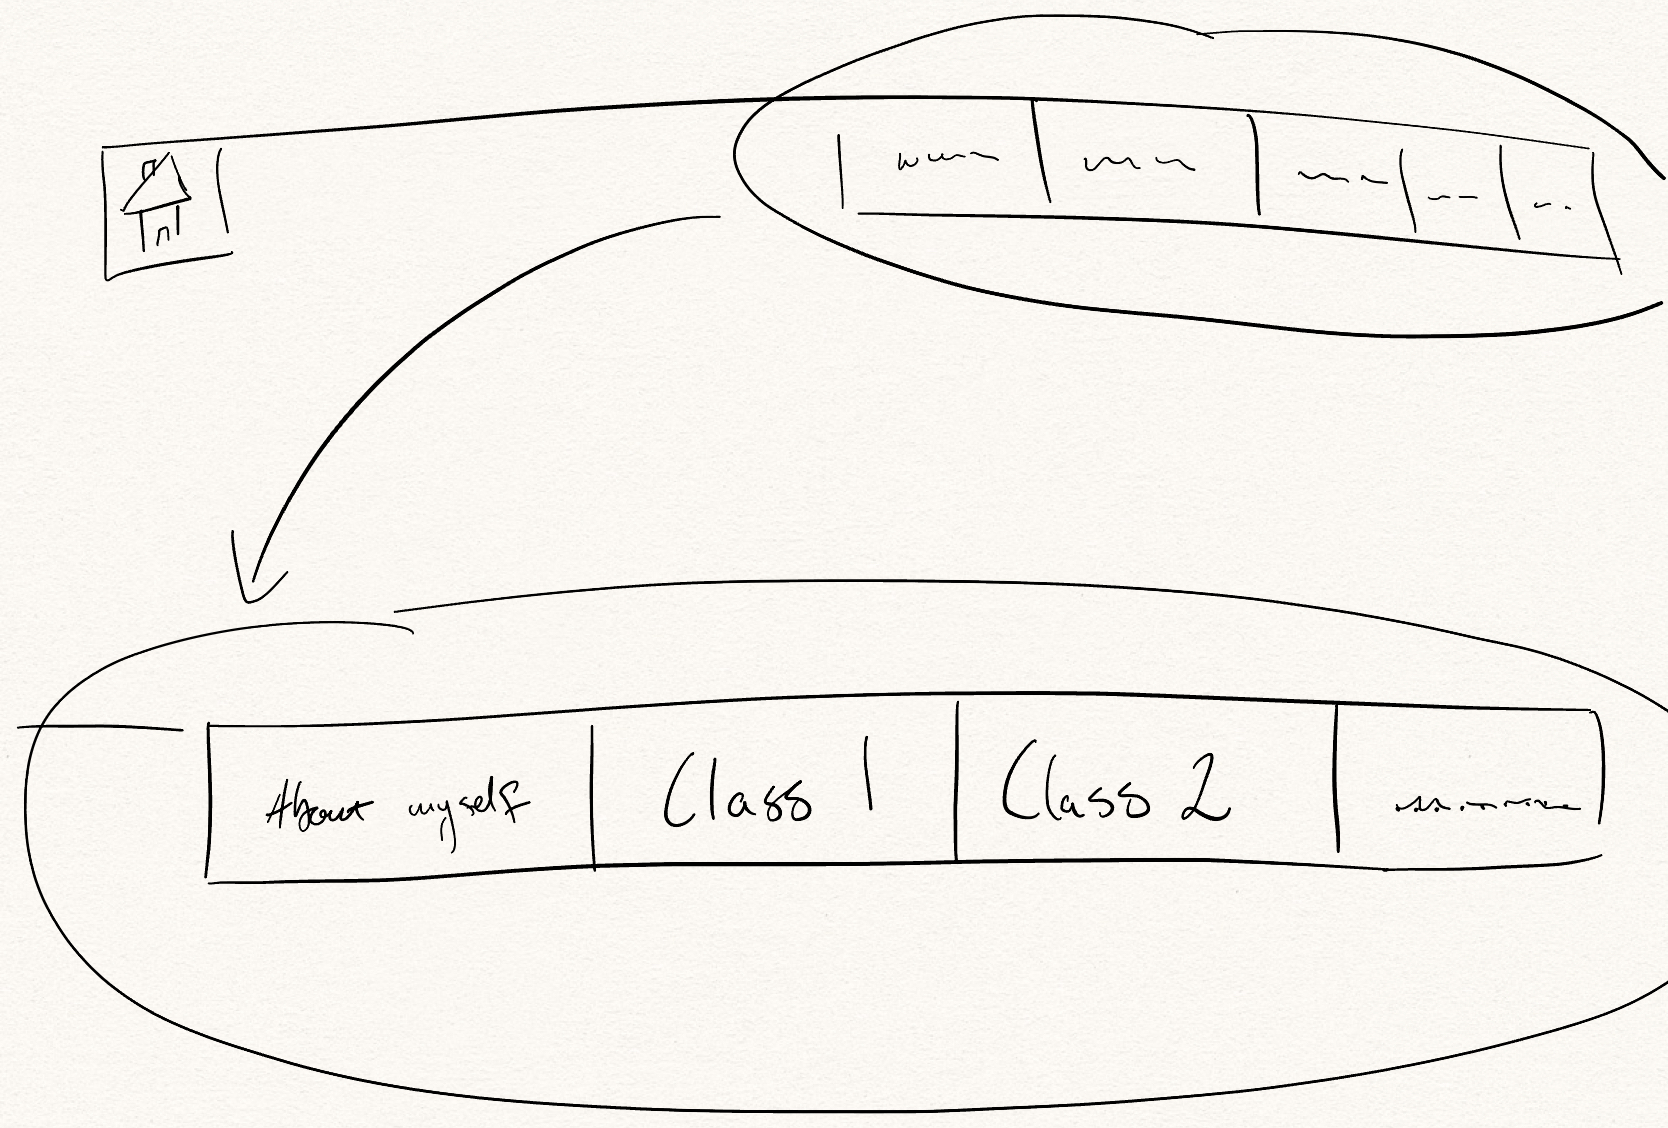 About myself
Class 1
Class 2